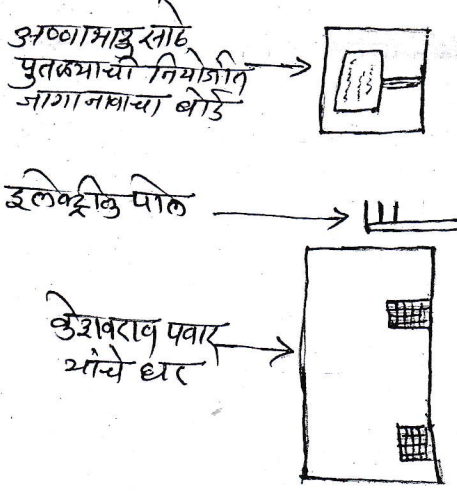 अण्णाभाऊ साठे
पुतळ्याची नियोजीत
जागा नावाचा बोर्ड
इलेक्ट्रीक पोल
केशवराव पवार
यांचे घर